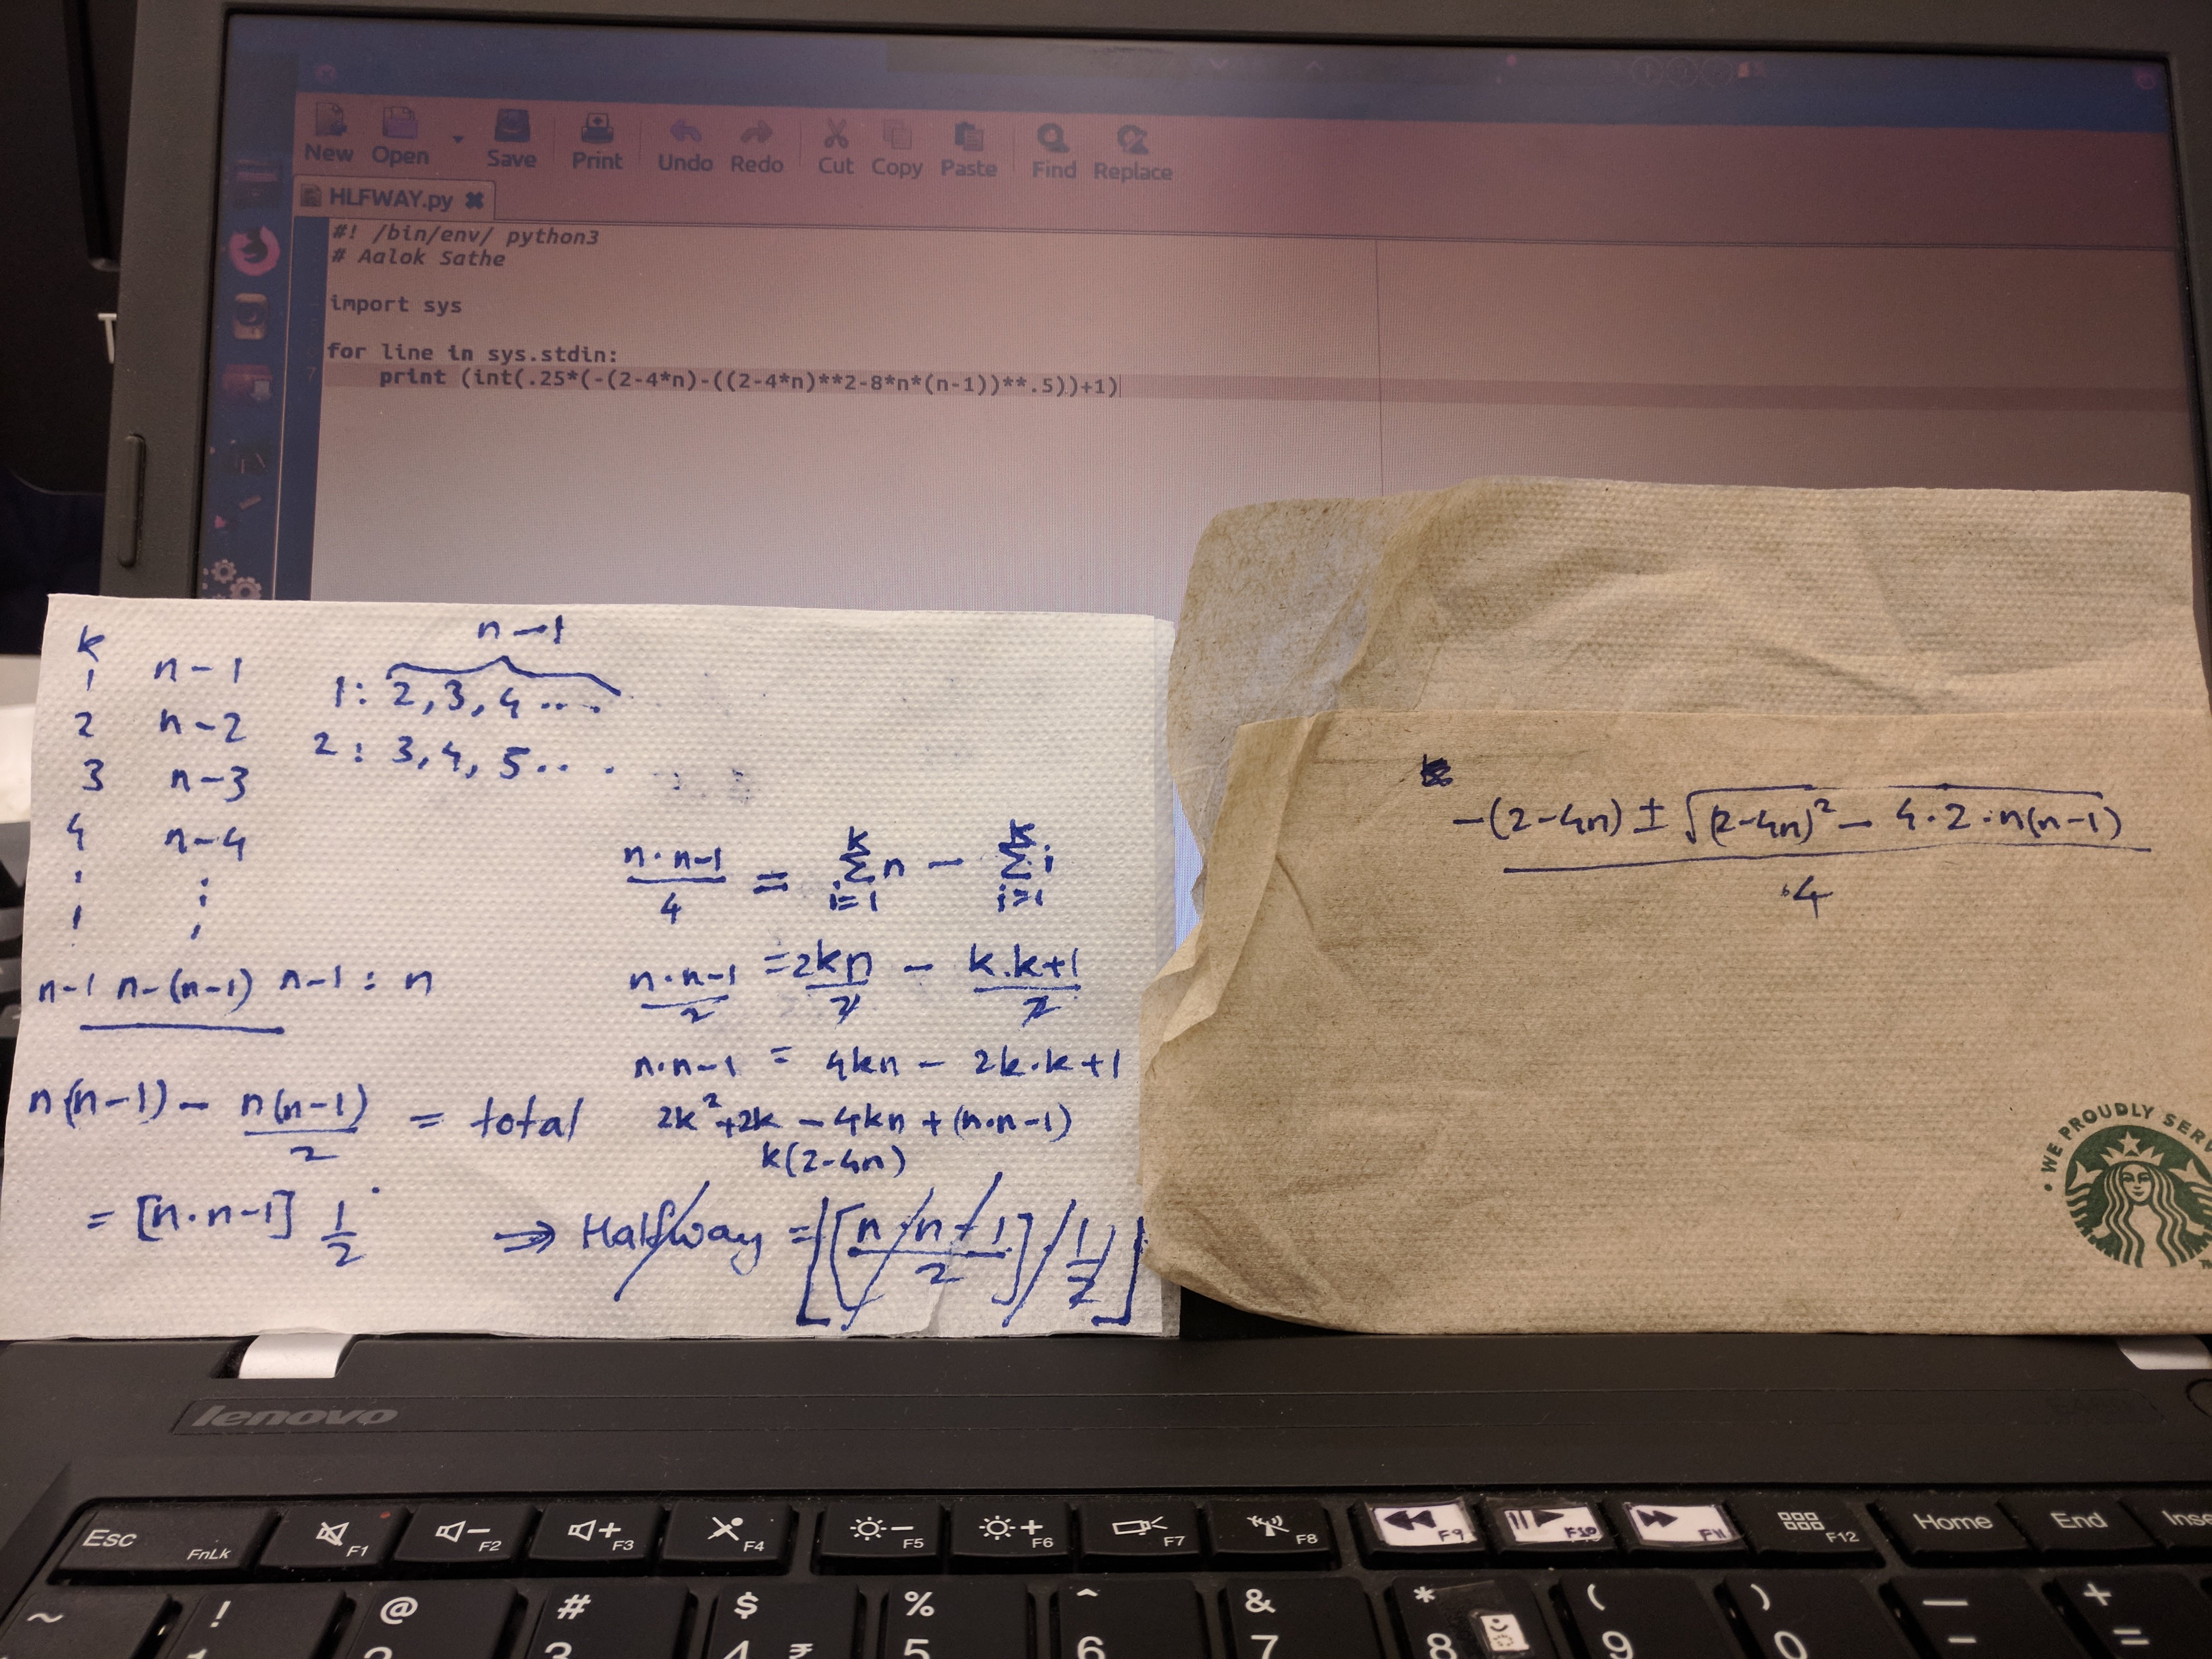 New Open Save Print Undo Redo Cut Copy Paste Find Replace
HLFWAY.py
#! /bin/env/ python3
# Aalok Sathe
import sys
for line in sys.stdin:
7 print (int(.25*(-(2-4*n)-((2-4*n)**2-8*n*(n-1))**.5))+1)
k
1 n-1
2 n-2
3 n-3
4 n-4
n-1 n-(n-1) n-1 : n
n-1
1: 2, 3, 4 ....
2: 3, 4, 5 ...
n(n-1) - n(n-1)/2 = total
= [n·n-1] 1/2
n·n-1/4 = k Σ i=1 n - k Σ i=1 i
n·n-1/2 = 2kn/2 - k.k+1/2
n·n-1 = 4kn - 2k.k+1
2k²+2k - 4kn + (n·n-1)
k(2-4n)
⇒ Halfway = [[n·n-1/2] · 1/2]
-(2-4n) ± √(2-4n)² - 4·2·n(n-1)
4
WE PROUDLY SERV
lenovo
Esc FnLk F1 F2 F3 F4 F5 F6 F7 F8 F9 F10 F11 F12 Home End Inse
~ ! @ # $ % ^ & * ( ) — +
1 2 3 4 ₹ 5 6 7 8 9 0 - =